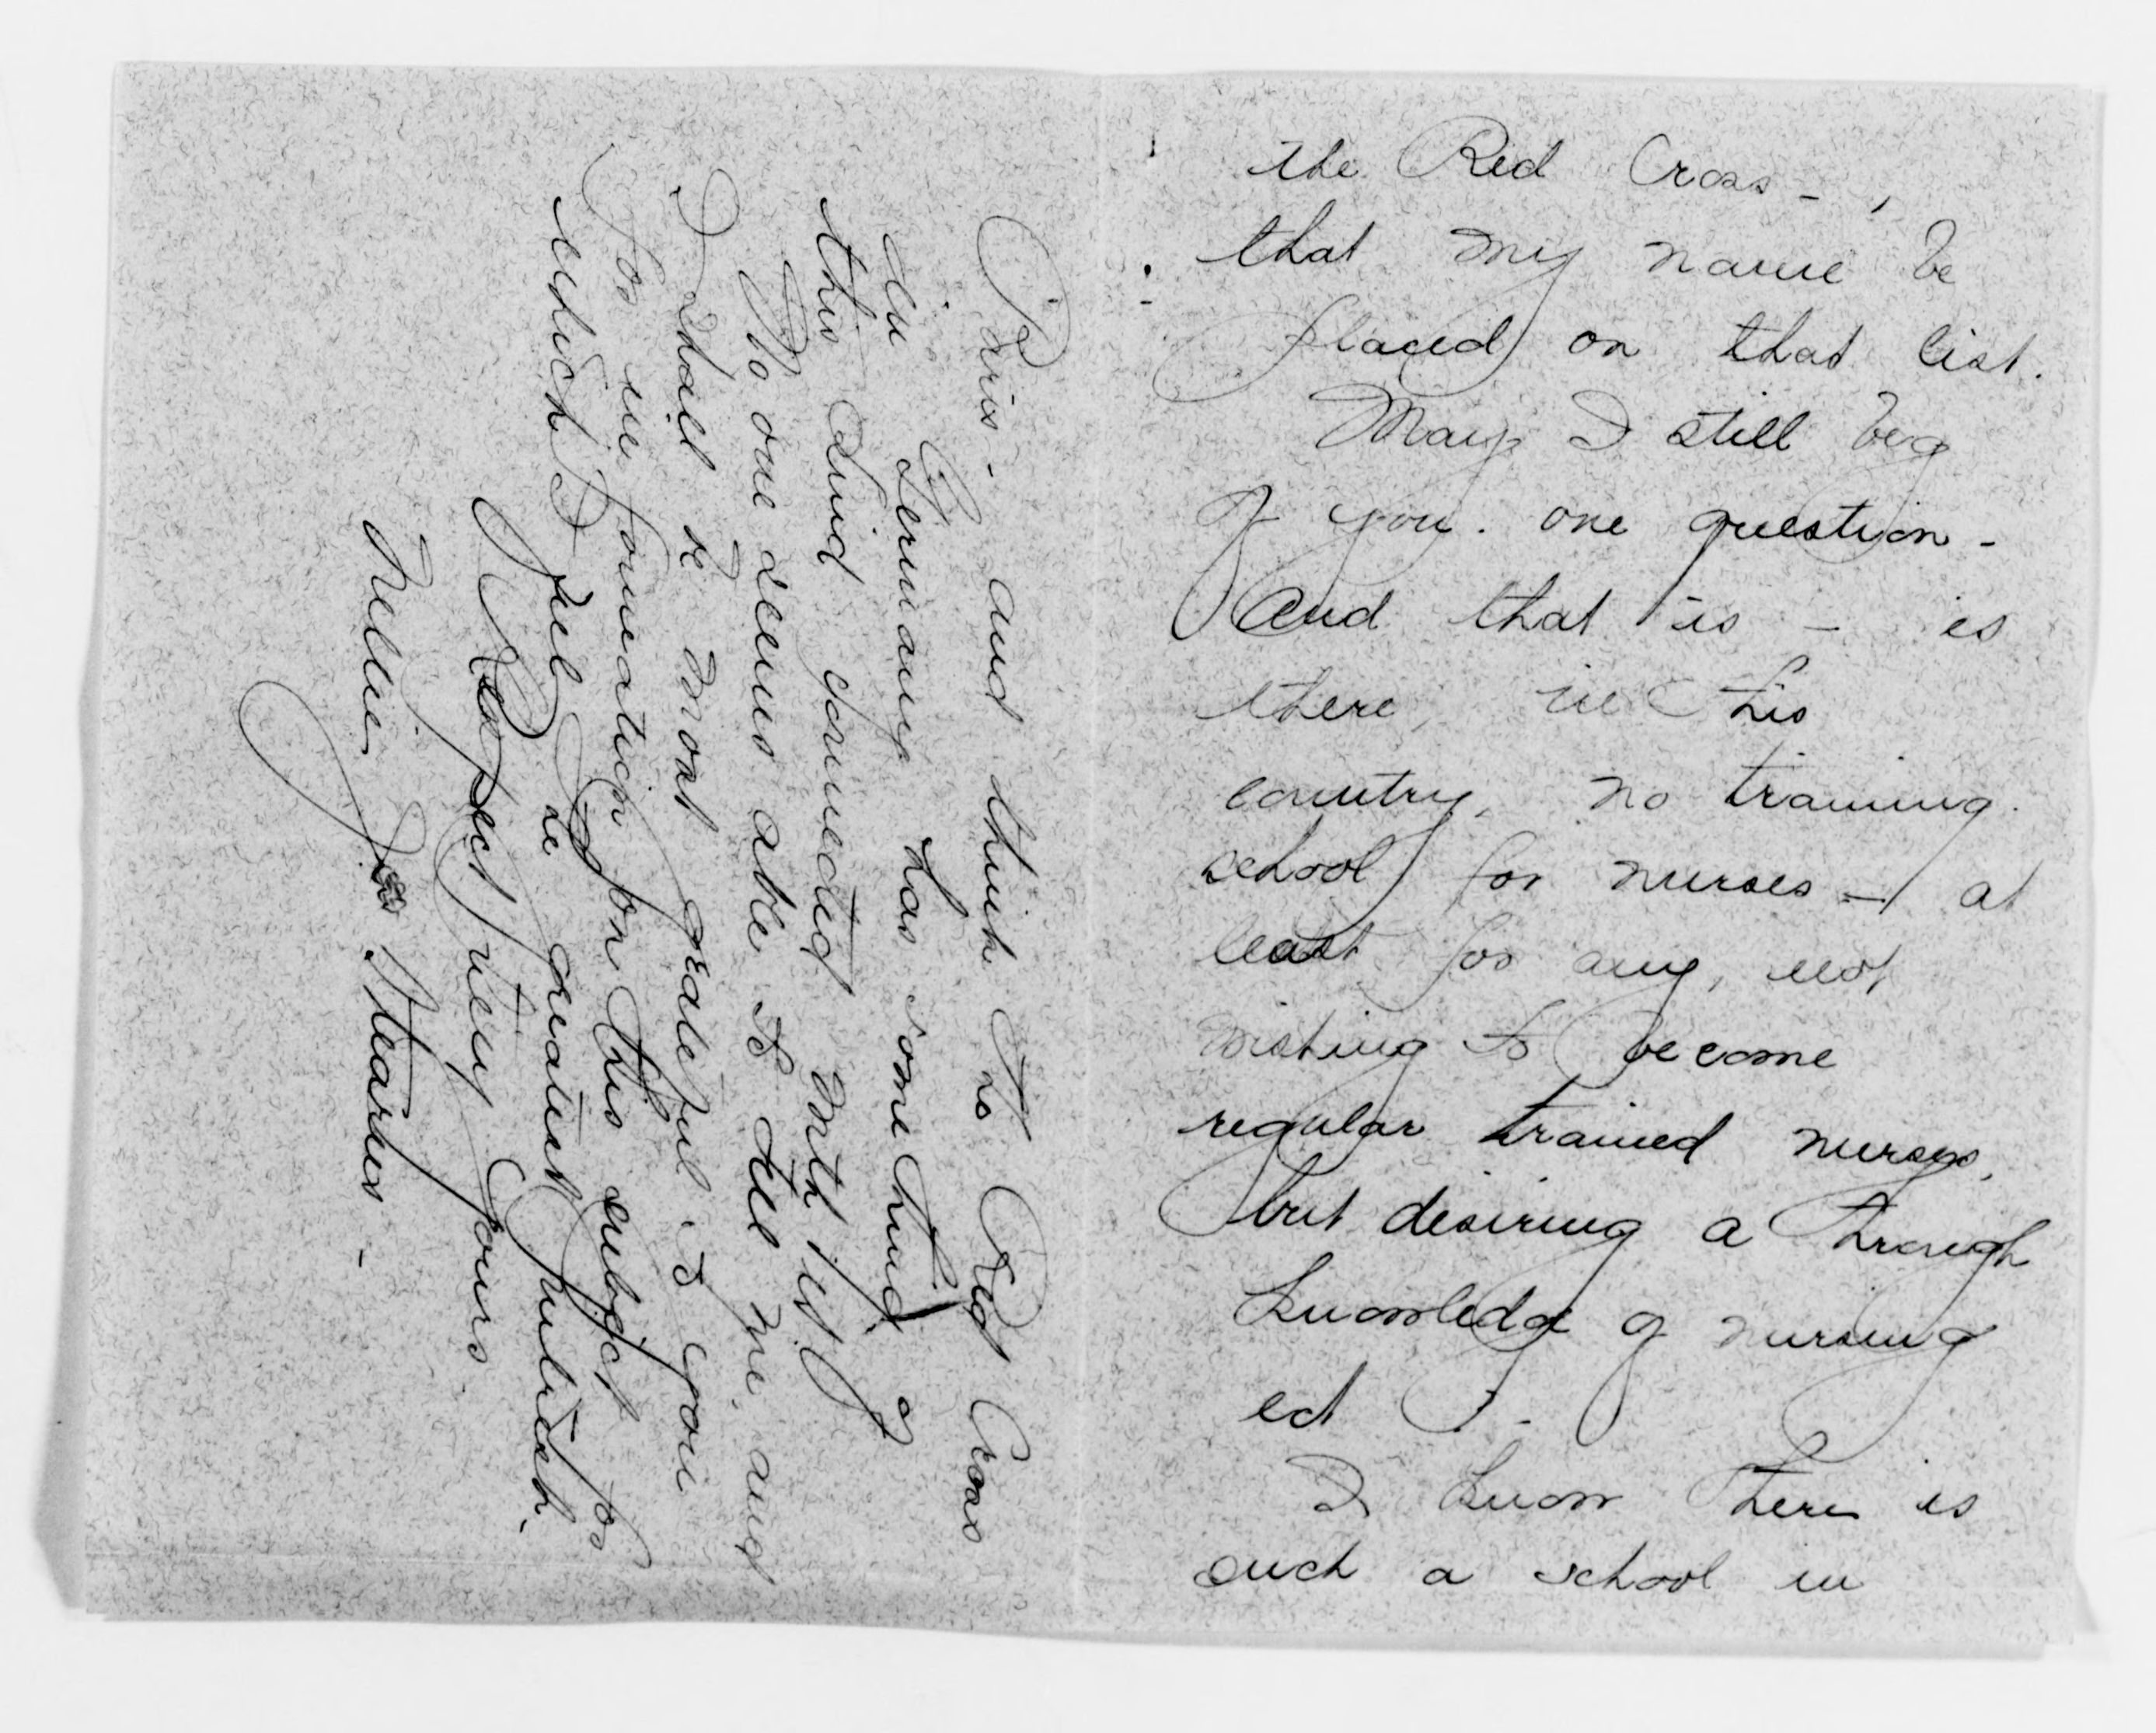 the Red Cross - ,
that my name be
placed on that list.
May I still beg
of you . one question -
And that is - is
there, in this
country, no training
school for nurses - at
least for any, not
wishing to become
regular trained nurses,
but desiring a through
knowledge of nursing
ect ? -
I know there is
such a school in
Paris - and think the Red Cross
in Germany has something of
this kind connected with it.
No one seems able to tell me, and
I shall be most grateful to you
for information on this subject for
which I feel the greatest interest.
Respect very yours
Nellie Stearns -